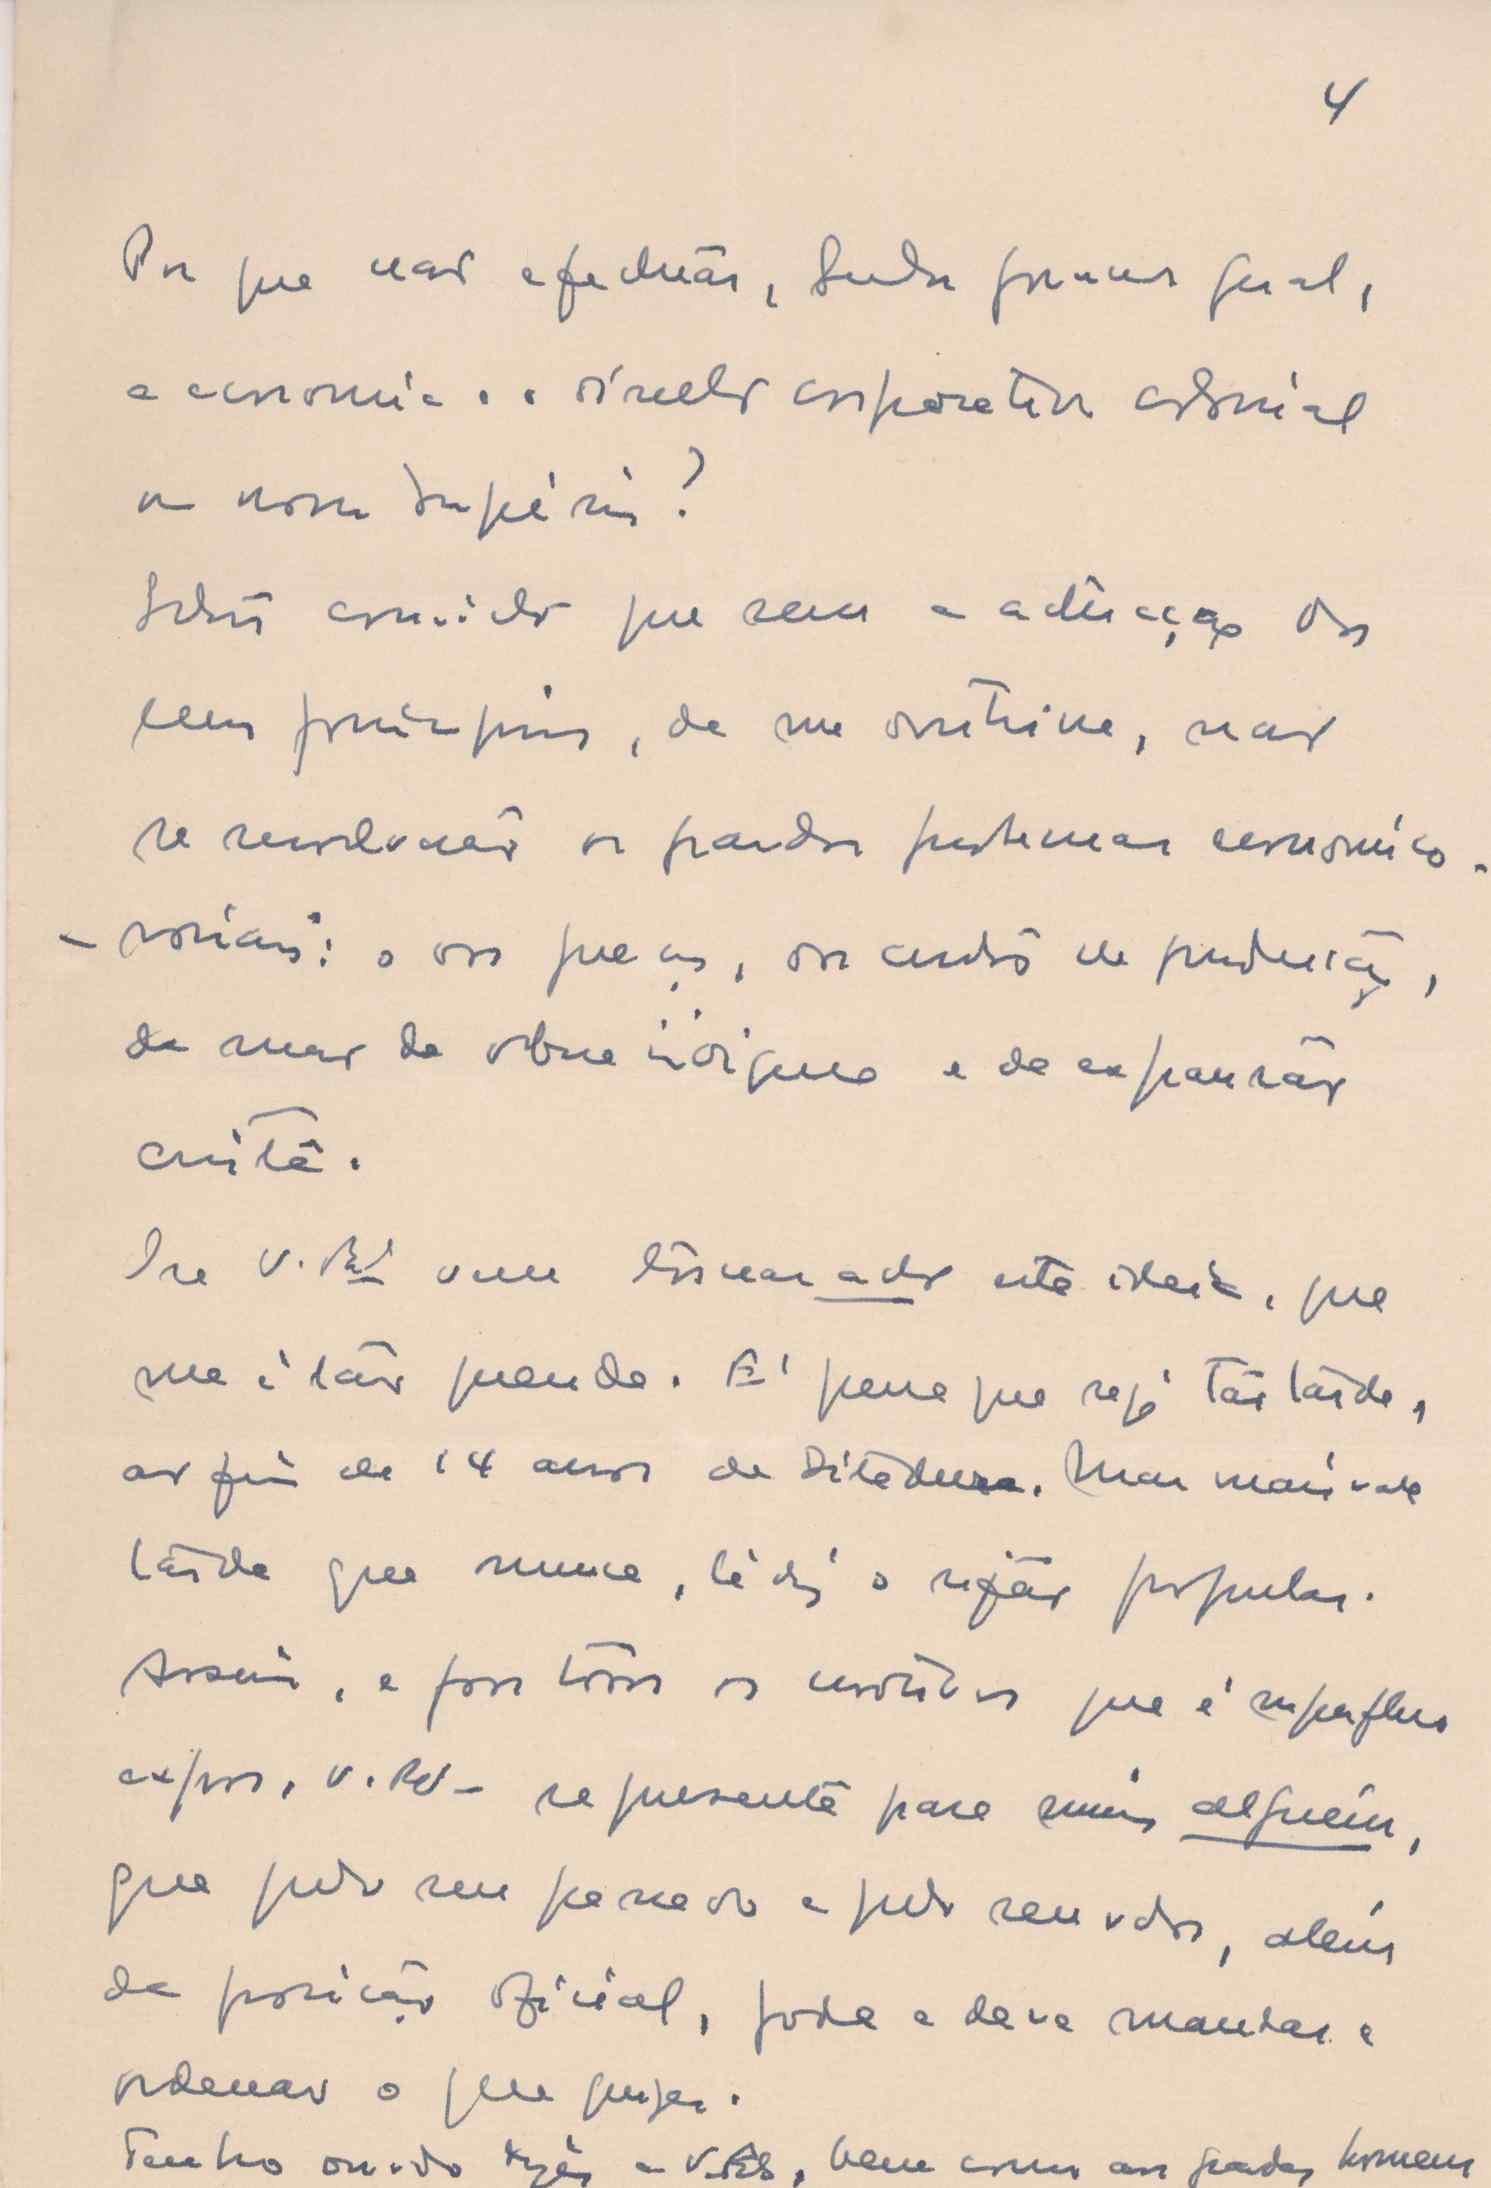 4
Por que não efectuar, dum forma geral,
a economia e o direito corporativo colonial
no nosso Império?
Estou convicto que sem a actuação dos
seus princípios, da sua doutrina, não
se resolverão os grandes problemas economico-
-sociais: o dos preços, dos custos de produção,
da mão de obra indígena e da expansão
cristã.
Se V. Exª vem tornar acto esta ideia, que
me é tão querida. É pena que seja tão tarde,
ao fim de 14 anos de Ditadura. Mas mais vale
tarde que nunca, lá diz o rifão popular.
Assim, e por todos os motivos que é superfluo
expor, V. Exª representa para mim alguém,
que pelo seu passado e pelo seu valor, além
da posição oficial, pode e deve mandar e
ordenar o que quizer.
Tenho ouvido a V. Exª, bem como aos grandes homens